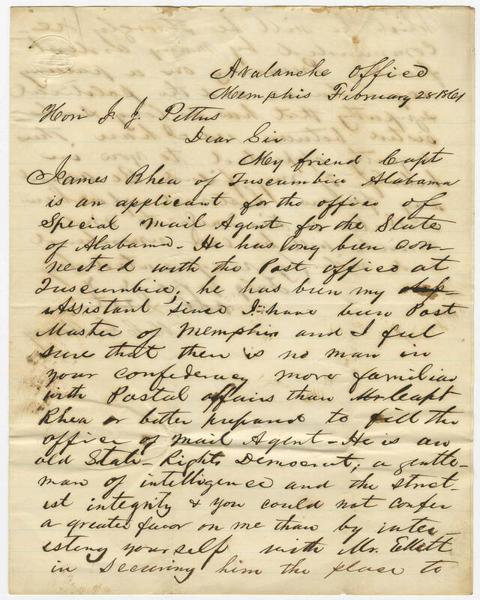 Avalanche Office
Memphis February 28 1861
Hon J. J. Pettus
Dear Sir
My friend Capt
James Rhea of Tuscumbia Alabama
is an applicant for the office of
Special Mail Agent for the State
of Alabama. He has long been con-
nected with the Post office at
Tuscumbia, he has been my
Assistant since I have been Post
Master of Memphis and I feel
sure that there is no man in
your confederacy more familiar
with Postal affairs than Capt
Rhea or better prepared to fill the
office of Mail Agent - He is an
old State-Rights Democrat; a gentle-
man of intelligence and the strict-
est integrity & you could not confer
a greater favor on me than by inter
esting yourself with Mr. Ellett
in securing him the place to